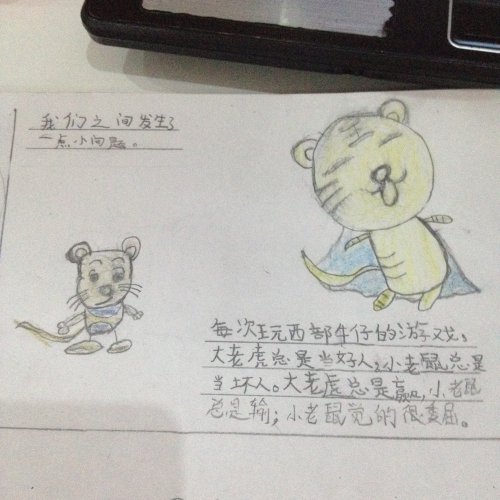 我们之间发生了
一点小问题。
每次玩西部牛仔的游戏，
大老虎总是当好人，小老鼠总是
当坏人。大老虎总是赢，小老鼠
总是输；小老鼠觉的很委屈。